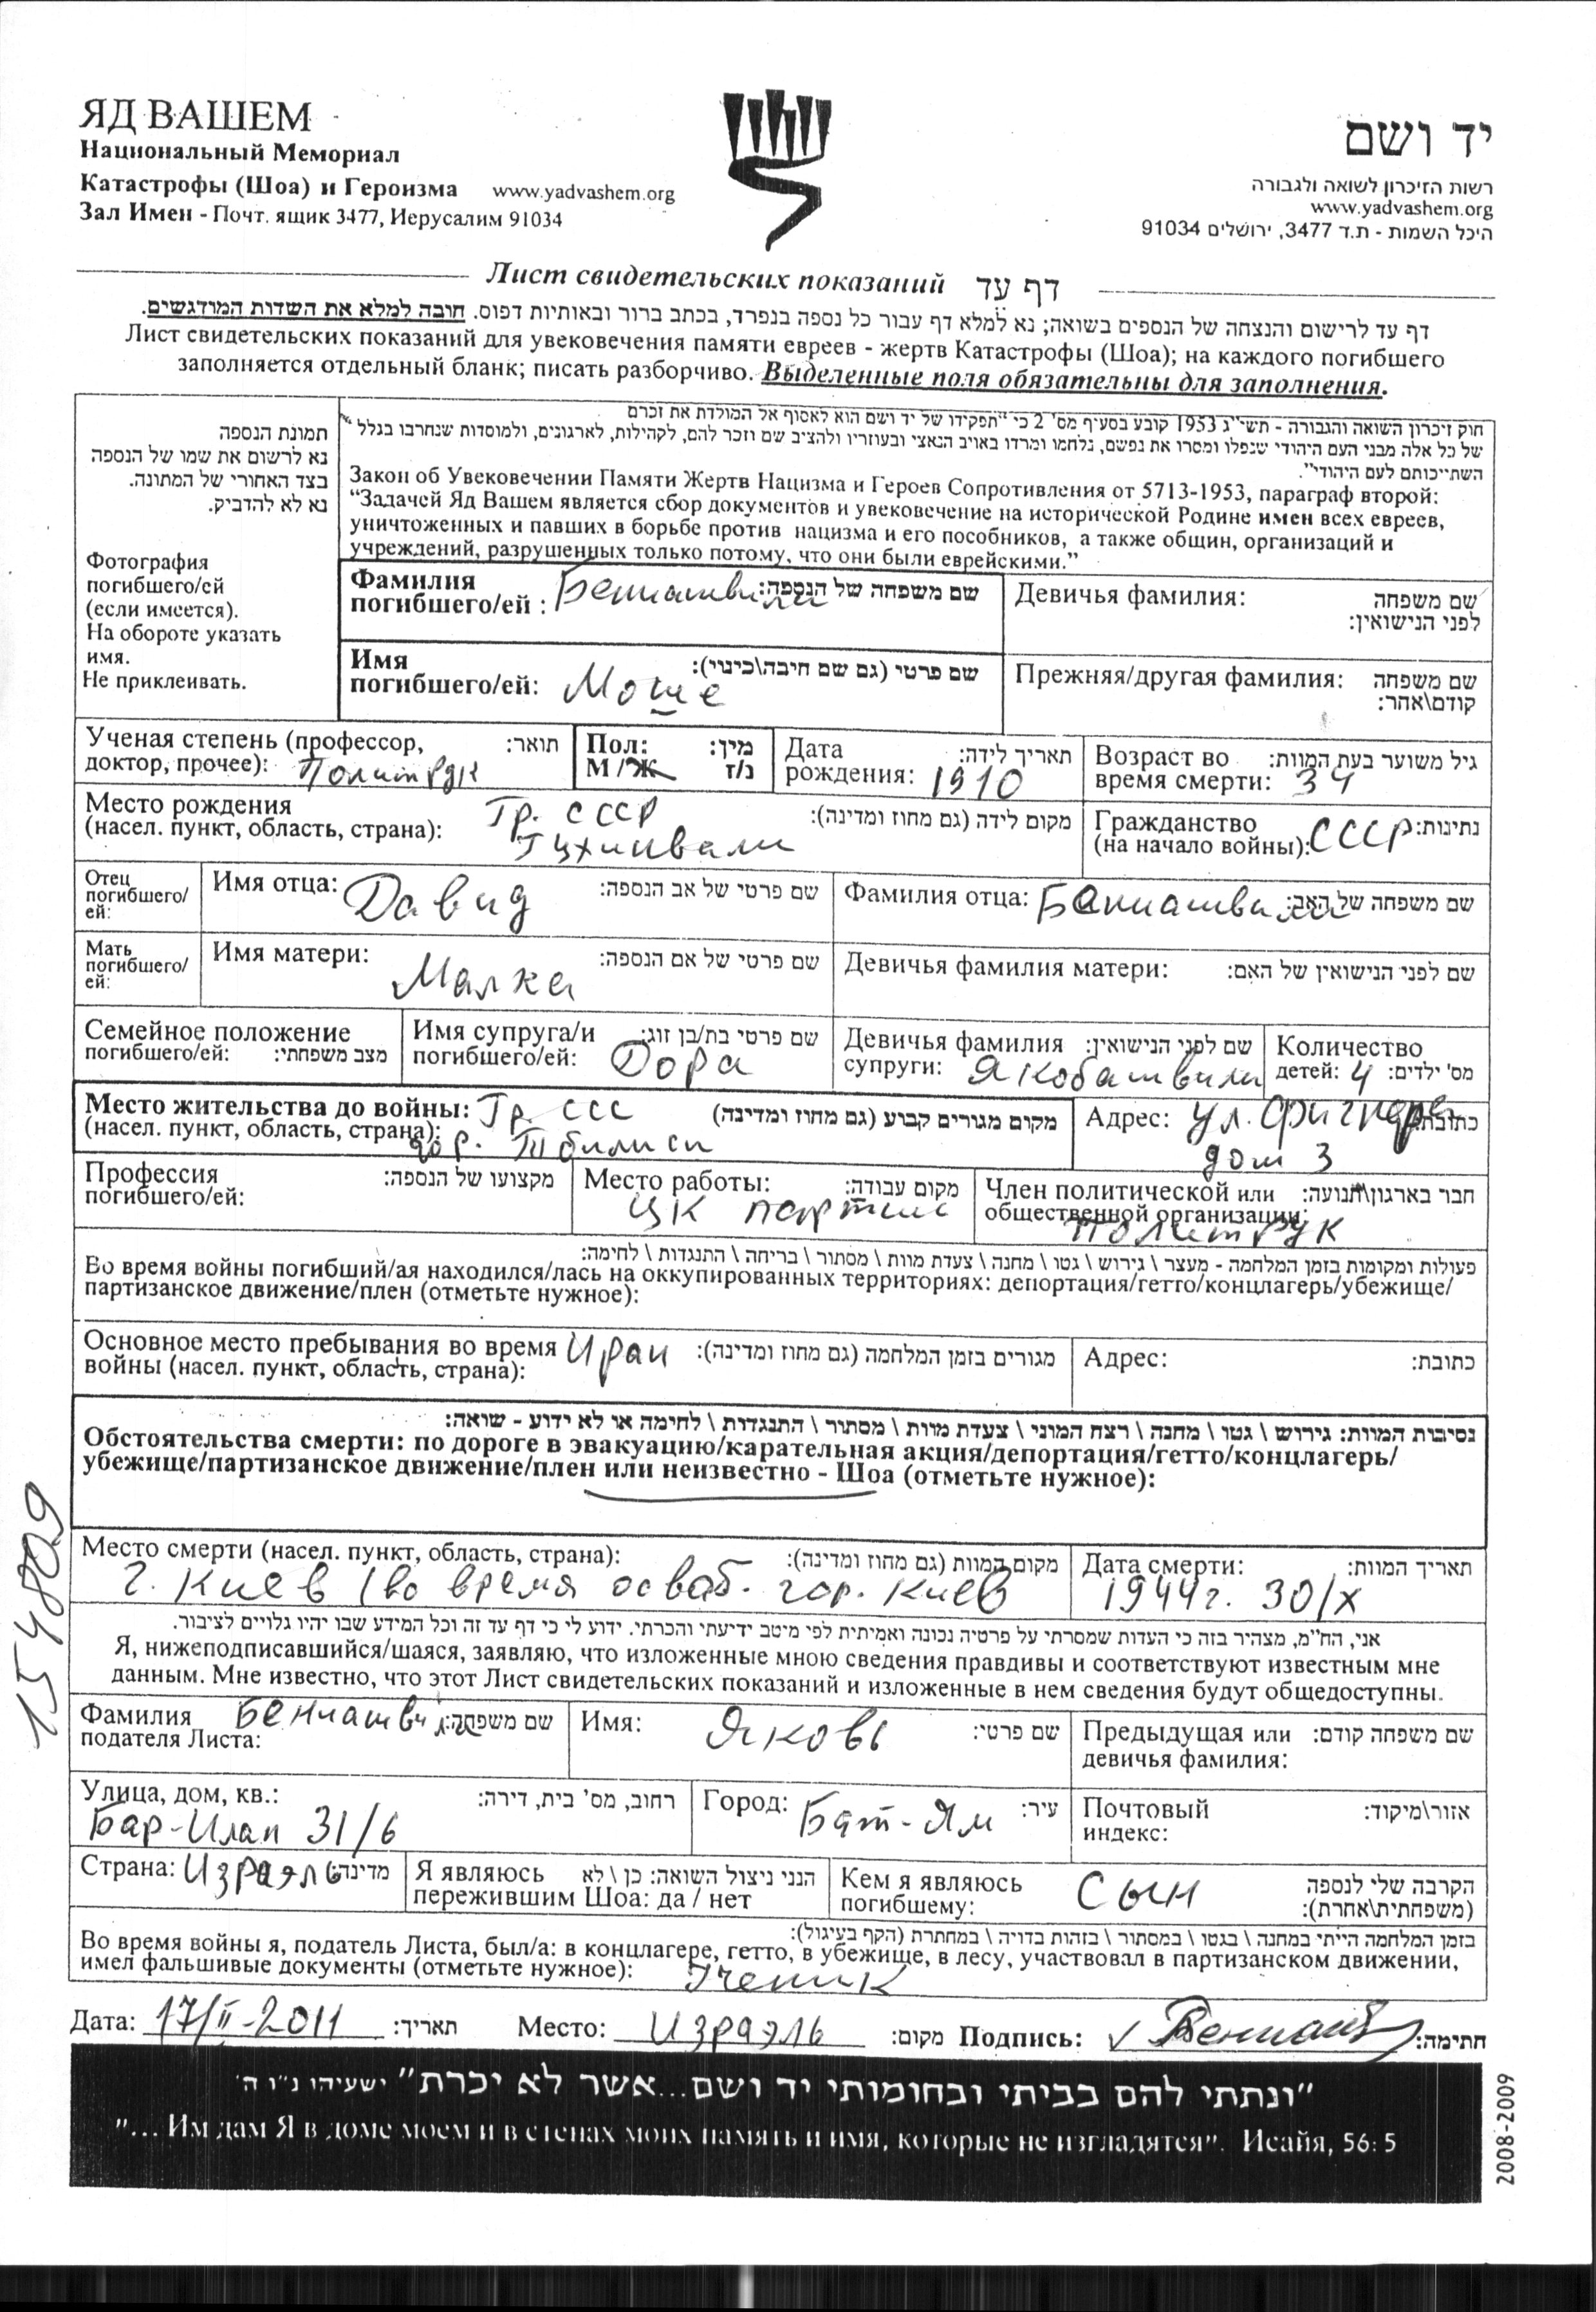 ЯД ВАШЕМ
Национальный Мемориал
Катастрофы (Шоа) и Героизма www.yadvashem.org
Зал Имен - Почт. ящик 3477, Иерусалим 91034
יד ושם
רשות הזיכרון לשואה ולגבורה
www.yadvashem.org
היכל השמות - ת.ד 3477, ירושלים 91034
Лист свидетельских показаний דף עד
דף עד לרישום והנצחה של הנספים בשואה; נא למלא דף עבור כל נספה בנפרד, בכתב ברור ובאותיות דפוס. חובה למלא את השדות המודגשים.
Лист свидетельских показаний для увековечения памяти евреев - жертв Катастрофы (Шоа); на каждого погибшего
заполняется отдельный бланк; писать разборчиво. Выделенные поля обязательны для заполнения.
תמונת הנספה
נא לרשום את שמו של הנספה
בצד האחורי של המתונה.
נא לא להדביק.
Фотография
погибшего/ей
(если имеется).
На обороте указать
имя.
Не приклеивать.
חוק זיכרון השואה והגבורה - תשי"ג 1953 קובע בסעיף מס' 2 כי "תפקידו של יד ושם הוא לאסוף אל המולדת את זכרם
של כל אלה מבני העם היהודי שנפלו ומסרו את נפשם, נלחמו ומרדו באויב הנאצי ובעוזריו ולהציב שם וזכר להם, לקהילות, לארגונים, ולמוסדות שנחרבו בגלל
השתייכותם לעם היהודי".
Закон об Увековечении Памяти Жертв Нацизма и Героев Сопротивления от 5713-1953, параграф второй:
“Задачей Яд Вашем является сбор документов и увековечение на исторической Родине имен всех евреев,
уничтоженных и павших в борьбе против нацизма и его пособников, а также общин, организаций и
учреждений, разрушенных только потому, что они были еврейскими.”
Фамилия погибшего/ей : Бениашвили שם משפחה של הנספה:
Девичья фамилия: שם משפחה לפני הנישואין:
Имя погибшего/ей: Моше שם פרטי (גם שם חיבה\כינוי):
Прежняя/другая фамилия: שם משפחה קודם\אחר:
Ученая степень (профессор, доктор, прочее): Политрук תואר:
Пол: М / Ж מין: ז/נ
Дата рождения: 1910 תאריך לידה:
Возраст во время смерти: 34 גיל משוער בעת המוות:
Место рождения (насел. пункт, область, страна): Гр. СССР
Цхинвали מקום לידה (גם מחוז ומדינה):
Гражданство (на начало войны): СССР נתינות:
Отец погибшего/ей: Имя отца: Давид שם פרטי של אב הנספה:
Фамилия отца: Бениашвили שם משפחה של האב:
Мать погибшего/ей: Имя матери: Малка שם פרטי של אם הנספה:
Девичья фамилия матери: שם לפני הנישואין של האם:
Семейное положение погибшего/ей: מצב משפחתי:
Имя супруга/и погибшего/ей: Дора שם פרטי בת/בן זוג:
Девичья фамилия супруги: Якобашвили שם לפני הנישואין:
Количество детей: 4 מס' ילדים:
Место жительства до войны: Гр. ССС מקום מגורים קבוע (גם מחוז ומדינה)
(насел. пункт, область, страна): гор. Тбилиси
Адрес: ул. дом 3 כתובת:
Профессия погибшего/ей: מקצועו של הנספה:
Место работы: ЦК партии מקום עבודה:
Член политической или общественной организации: Политрук חבר בארגון\תנועה:
פעולות ומקומות בזמן המלחמה - מעצר \ גירוש \ גטו \ מחנה \ צעדת מוות \ מסתור \ בריחה \ התנגדות \ לחימה:
Во время войны погибший/ая находился/лась на оккупированных территориях: депортация/гетто/концлагерь/убежище/
партизанское движение/плен (отметьте нужное):
Основное место пребывания во время войны (насел. пункт, область, страна): Иран מגורים בזמן המלחמה (גם מחוז ומדינה):
Адрес: כתובת:
נסיבות המוות: גירוש \ גטו \ מחנה \ רצח המוני \ צעדת מוות \ מסתור \ התנגדות \ לחימה או לא ידוע - שואה:
Обстоятельства смерти: по дороге в эвакуацию/карательная акция/депортация/гетто/концлагерь/
убежище/партизанское движение/плен или неизвестно - Шоа (отметьте нужное):
Место смерти (насел. пункт, область, страна): מקום המוות (גם מחוז ומדינה):
г. Киев (во время освоб. гор. Киев
Дата смерти: תאריך המוות:
1944г. 30/X
אני, הח"מ, מצהיר בזה כי העדות שמסרתי על פרטיה נכונה ואמיתית לפי מיטב ידיעתי והכרתי. ידוע לי כי דף עד זה וכל המידע שבו יהיו גלויים לציבור.
Я, нижеподписавшийся/шаяся, заявляю, что изложенные мною сведения правдивы и соответствуют известным мне
данным. Мне известно, что этот Лист свидетельских показаний и изложенные в нем сведения будут общедоступны.
Фамилия подателя Листа: Бениашвили שם משפחה:
Имя: Яковь שם פרטי:
Предыдущая или девичья фамилия: שם משפחה קודם:
Улица, дом, кв.: רחוב, מס' בית, דירה:
Бар-Илан 31/6
Город: Бат-Ям עיר:
Почтовый индекс: אזור\מיקוד:
Страна: Израэль מדינה:
Я являюсь пережившим Шоа: да / нет הנני ניצול השואה: כן \ לא
Кем я являюсь погибшему: Сын הקרבה שלי לנספה (משפחתית\אחרת):
בזמן המלחמה הייתי במחנה \ בגטו \ במסתור \ בזהות בדויה \ במחתרת (הקף בעיגול):
Во время войны я, податель Листа, был/а: в концлагере, гетто, в убежище, в лесу, участвовал в партизанском движении,
имел фальшивые документы (отметьте нужное): Ученик
Дата: 17/II-2011 תאריך: Место: Израэль מקום: Подпись: Бениашв חתימה:
"ונתתי להם בביתי ובחומותי יד ושם...אשר לא יכרת" ישעיהו נ"ו ה'
"... Им дам Я в доме моем и в стенах моих память и имя, которые не изгладятся". Исайя, 56: 5
154809
2008-2009